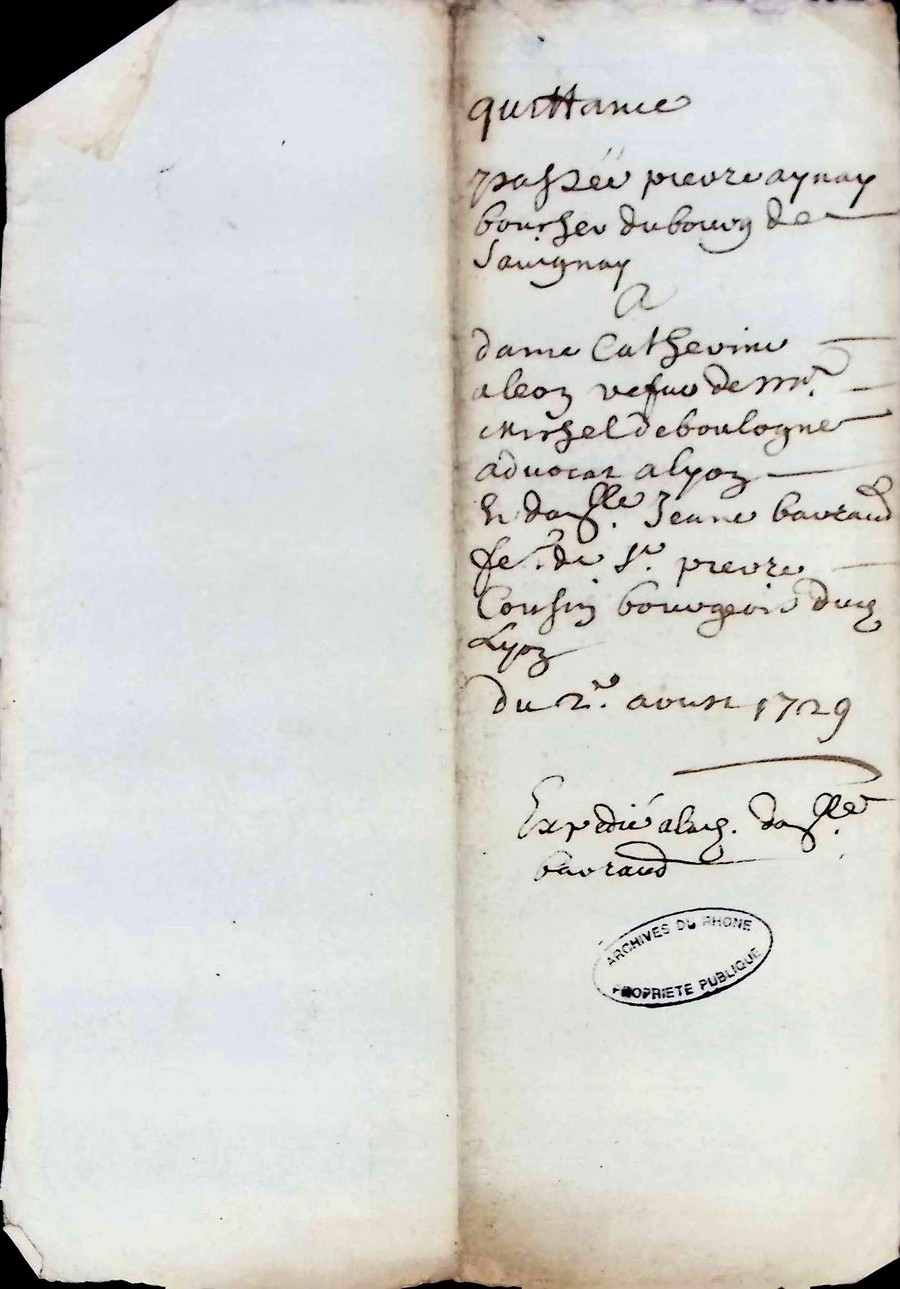 quittance
passéé pierre aynay
boucher du bourg de
Savignay
A
dame Catherine
aleon vefue de mr.
Michel deboulogne
advocat a lyon
Et dalle. Jeane bavraud
fe. de Sr. pierre
Cousin bourgeois dud
Lyon
du 2e. aoust 1729
Expedié alad. dalle.
bavraud
ARCHIVES DU RHONE
PROPRIETE PUBLIQUE